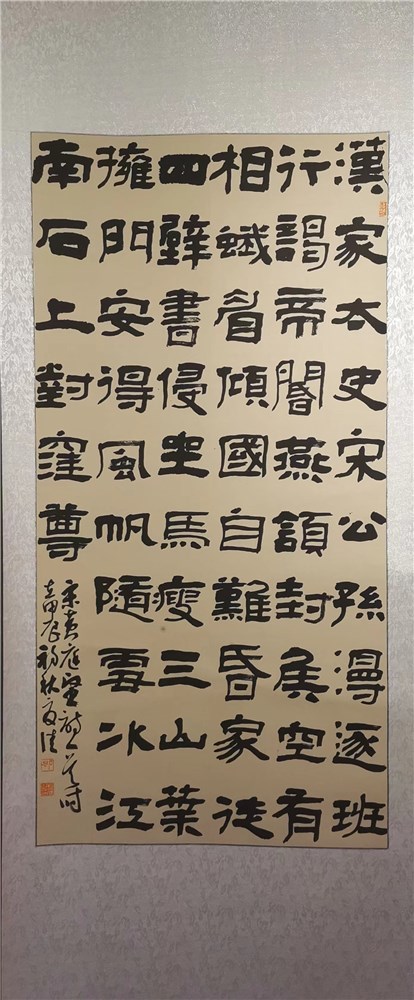 漢家太史宋公孫漫逐班
行謁帝閽燕頷封侯空有
相蛾眉傾國自難昏家徒
四壁書侵坐馬瘦三山葉
擁門安得風帆隨雪水江
南石上對窪尊
宋黃庭堅詩一首時
在甲辰初秋